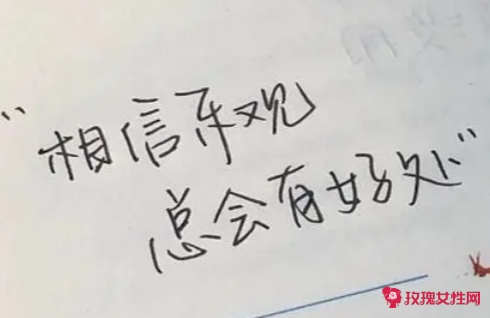 “相信乐观
总会有好处”
玫瑰女性网